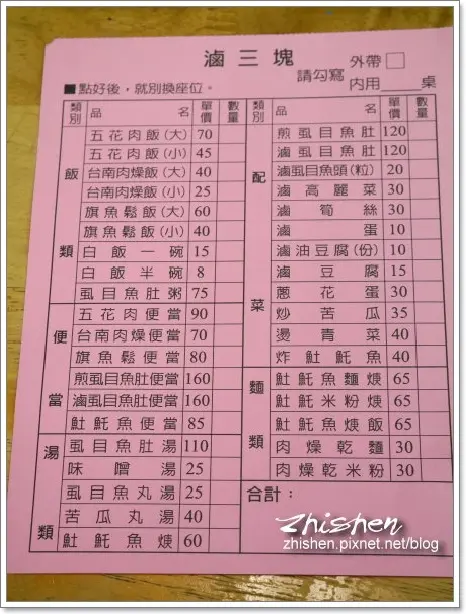 滷三塊
外帶□
請勾寫
內用____桌
■點好後，就別換座位。
類別 品名 單價 數量
飯類
五花肉飯(大) 70
五花肉飯(小) 45
台南肉燥飯(大) 40
台南肉燥飯(小) 25
旗魚鬆飯(大) 60
旗魚鬆飯(小) 40
白飯一碗 15
白飯半碗 8
虱目魚肚粥 75
便當
五花肉便當 90
台南肉燥便當 70
旗魚鬆便當 80
煎虱目魚肚便當 160
滷虱目魚肚便當 160
魠魚便當 85
湯類
虱目魚肚湯 110
味噌湯 25
虱目魚丸湯 25
苦瓜丸湯 40
魠魚焿 60
類別 品名 單價 數量
配菜
煎虱目魚肚 120
滷虱目魚肚 120
滷虱目魚頭(粒) 20
滷高麗菜 30
滷筍絲 30
滷蛋 10
滷油豆腐(份) 10
滷豆腐 15
蔥花蛋 30
炒苦瓜 35
燙青菜 40
炸魠魚 40
麵類
魠魚麵焿 65
魠魚米粉焿 65
魠魚焿飯 65
肉燥乾麵 30
肉燥乾米粉 30
合計：
Zhishen
zhishen.pixnet.net/blog